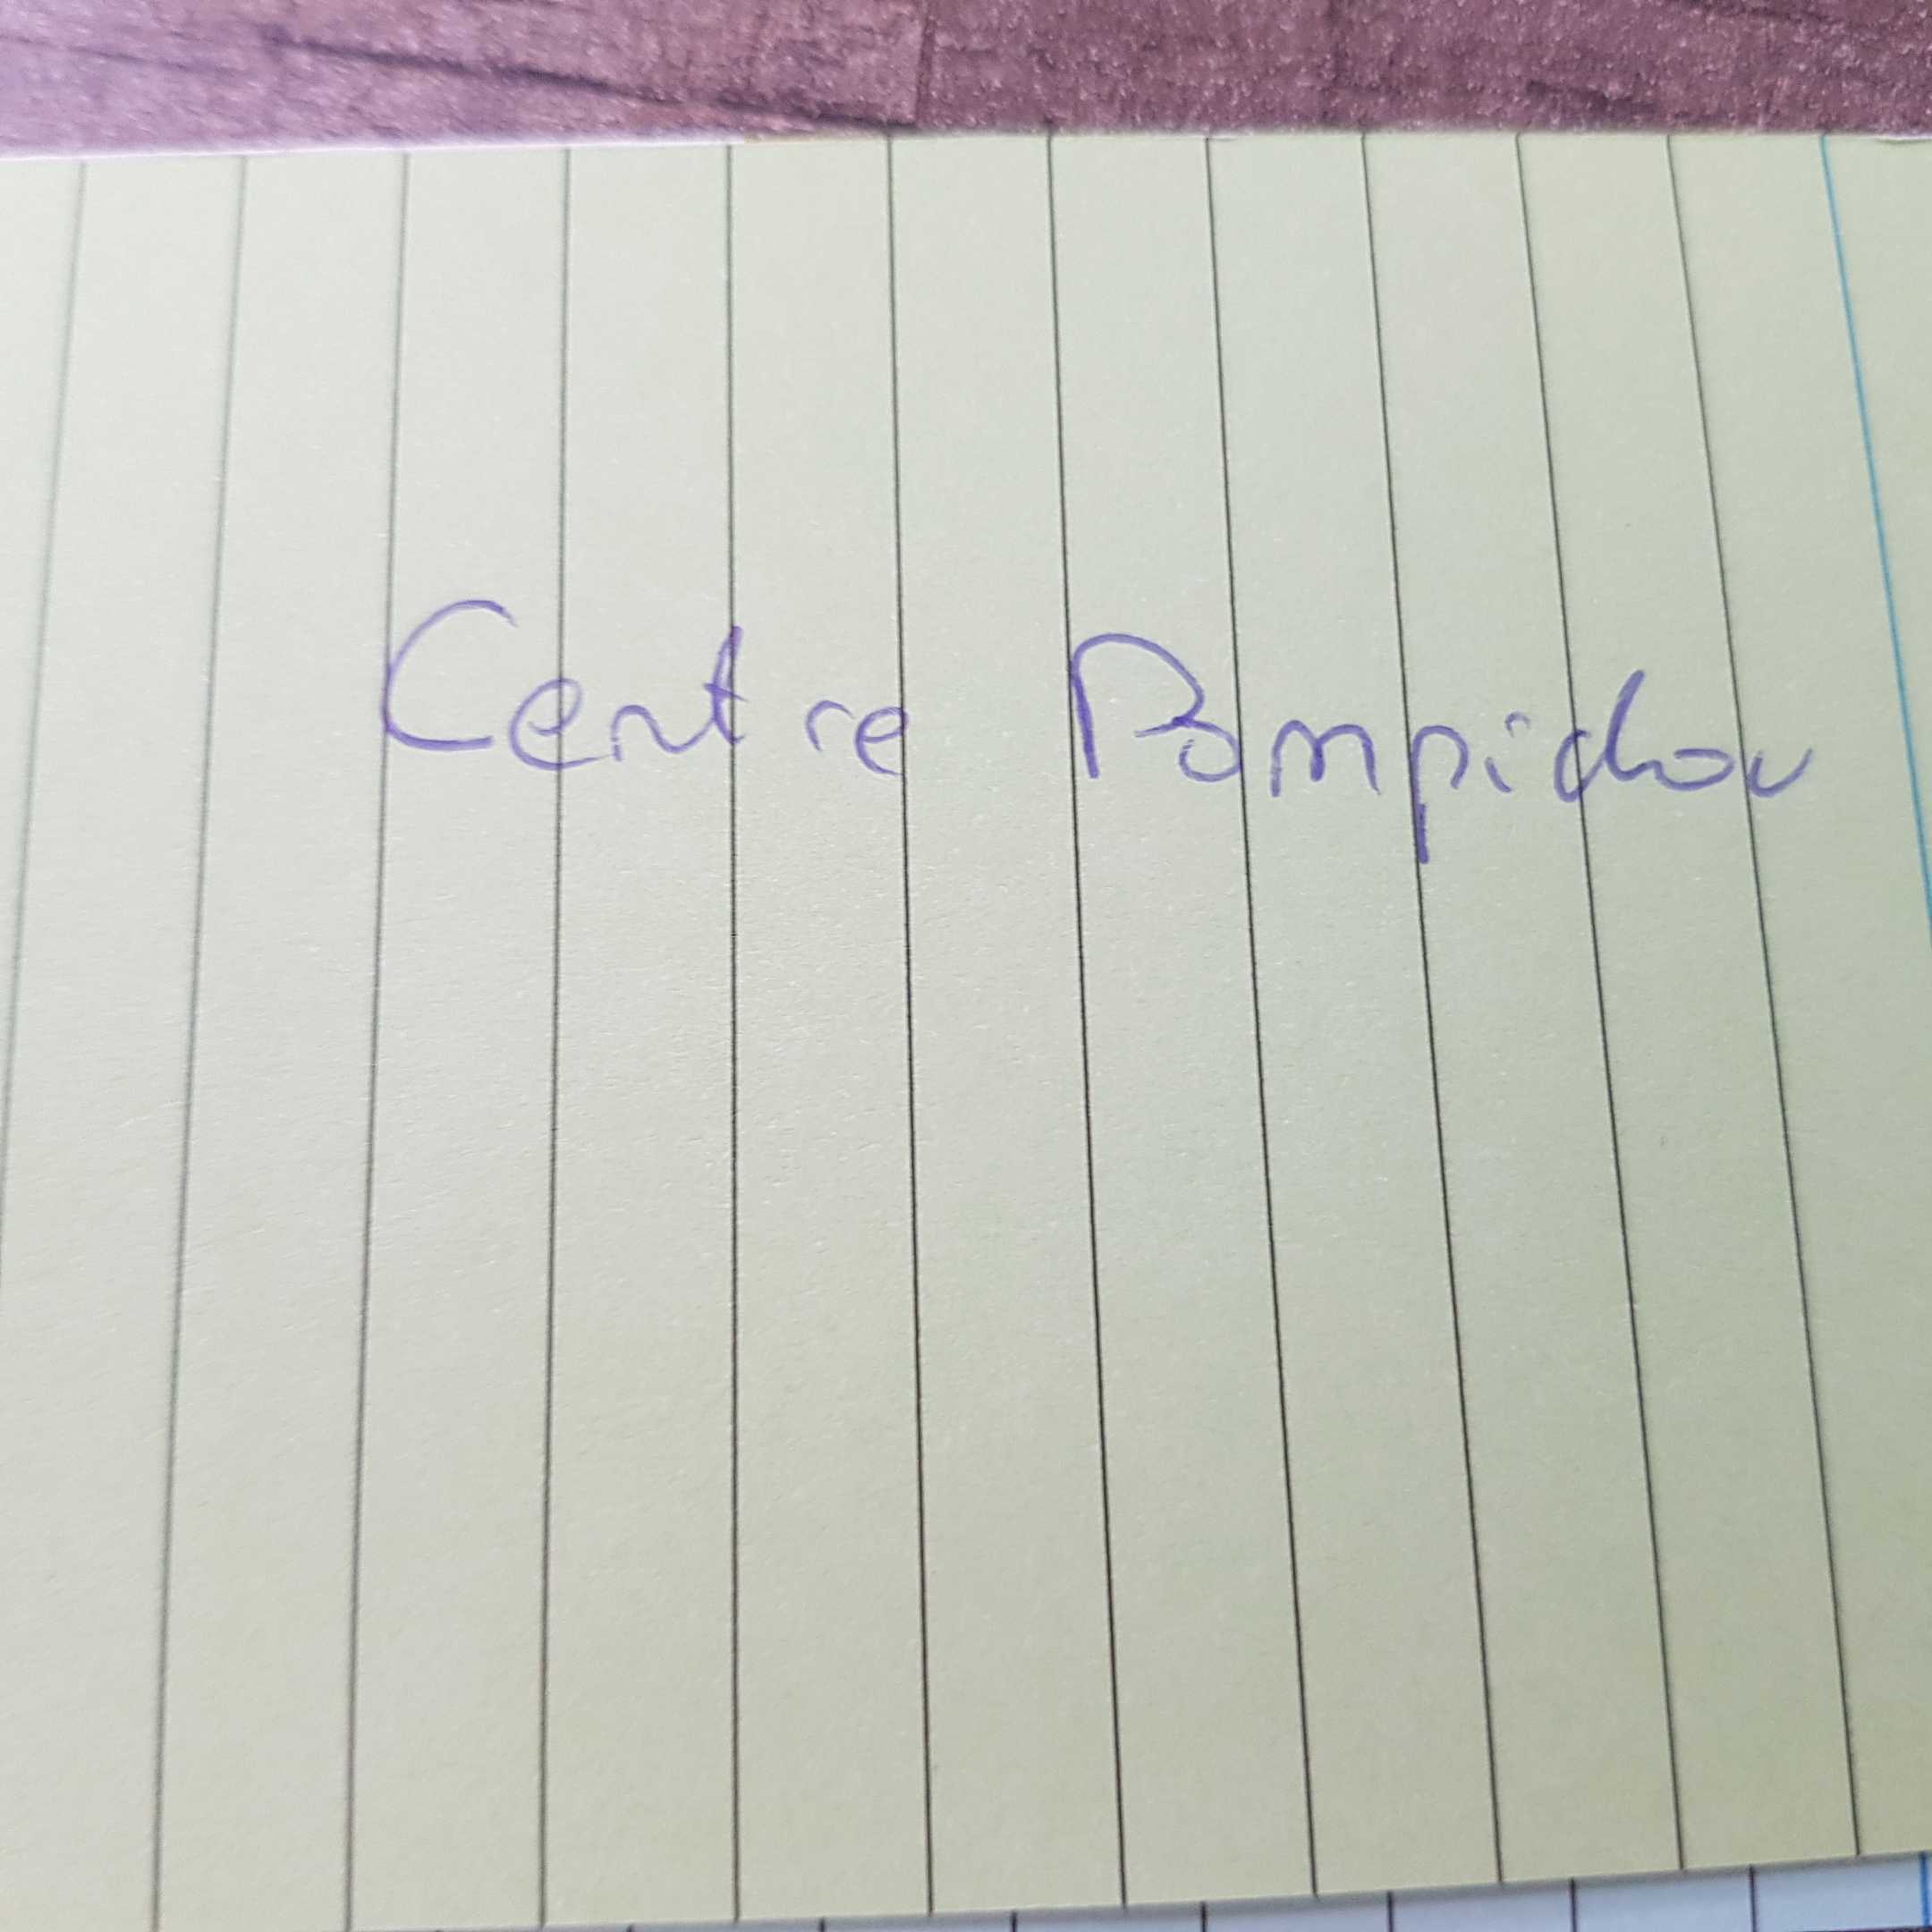 Centre Pompidou